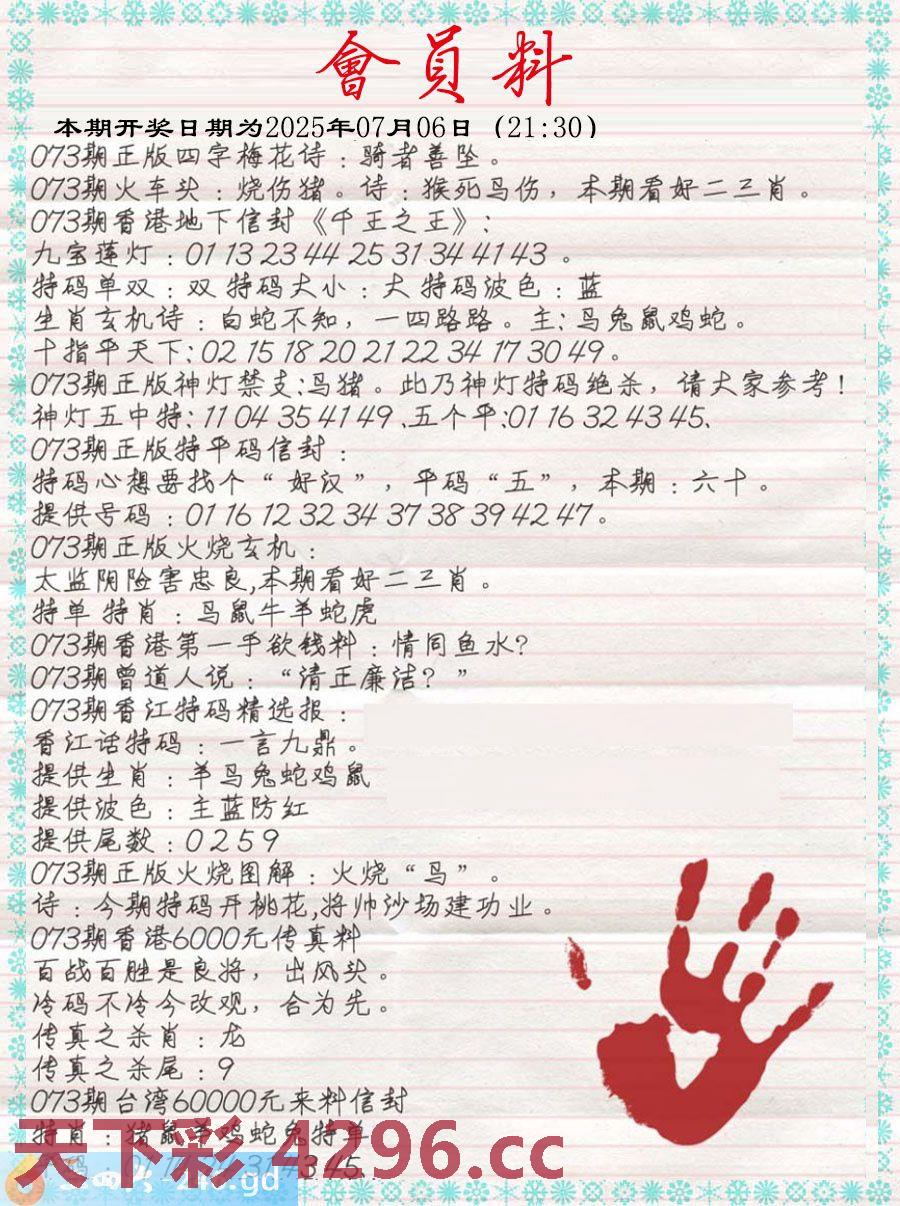 會員料
本期开奖日期为2025年07月06日（21:30）
073期正版四字梅花诗：骑者善坠。
073期火车头：烧伤猪。诗：猴死马伤，本期看好二三肖。
073期香港地下信封《千王之王》：
九宝莲灯：01 13 23 44 25 31 34 41 43 。
特码单双：双 特码大小：大 特码波色：蓝
生肖玄机诗：白蛇不知，一四路路。主：马兔鼠鸡蛇。
十指平天下：02 15 18 20 21 22 34 17 30 49。
073期正版神灯禁支：马猪。此乃神灯特码绝杀，请大家参考！
神灯五中特：11 04 35 41 49 .五个平:01 16 32 43 45.
073期正版特平码信封：
特码心想要找个“好汉”，平码“五”，本期：六十。
提供号码：01 16 12 32 34 37 38 39 42 47。
073期正版火烧玄机：
太监阴险害忠良,本期看好二三肖。
特单 特肖：马鼠牛羊蛇虎
073期香港第一手欲钱料：情同鱼水？
073期曾道人说：“清正廉洁？”
073期香江特码精选报：
香江话特码：一言九鼎。
提供生肖：羊马兔蛇鸡鼠
提供波色：主蓝防红
提供尾数：0 2 5 9
073期正版火烧图解：火烧“马”。
诗：今期特码开桃花,将帅沙场建功业。
073期香港6000元传真料
百战百胜是良将，出风头。
冷码不冷今改观，合为先。
传真之杀肖：龙
传真之杀尾：9
073期台湾60000元来料信封
特肖：猪鼠羊鸡蛇兔特单
天下彩 4296.cc
.gd